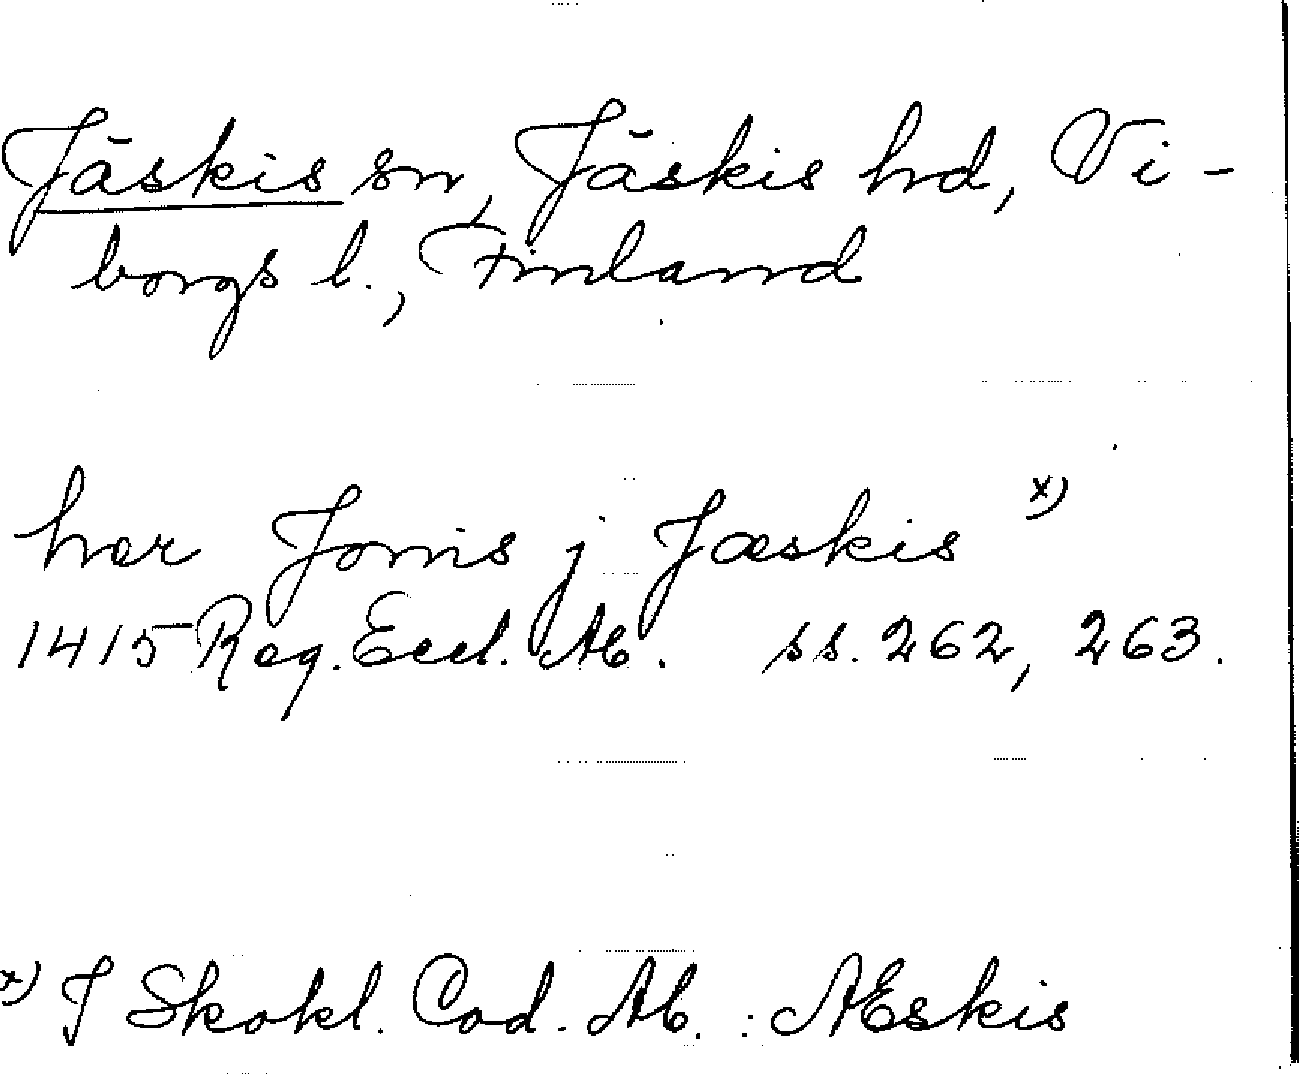 Jäskis sn, Jäskis hd, Vi-
borgs l., Finland
her Jønis j Jæskis x)
1415 Reg. Eccl. Ab. ss. 262, 263.
x) I Skokl. Cod. Ab. : Æskis